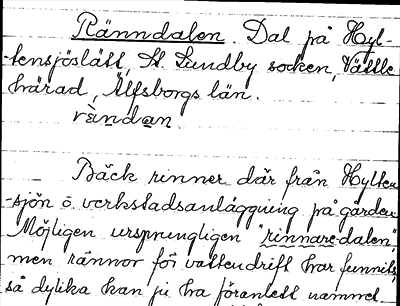 Ränndalen. Dal på Hyl-
-tensjöslätt, St. Lundby socken, Vättle
härad, Älfsborgs län.
rèndan.
Bäck rinner där från Hylten
-sjön ö. verkstadsanläggning på gården
Möjligen ursprungligen "rinnare-dalen",
men rännor för vattendrift har funnits
så dylika kan ju ha föranlett namnet